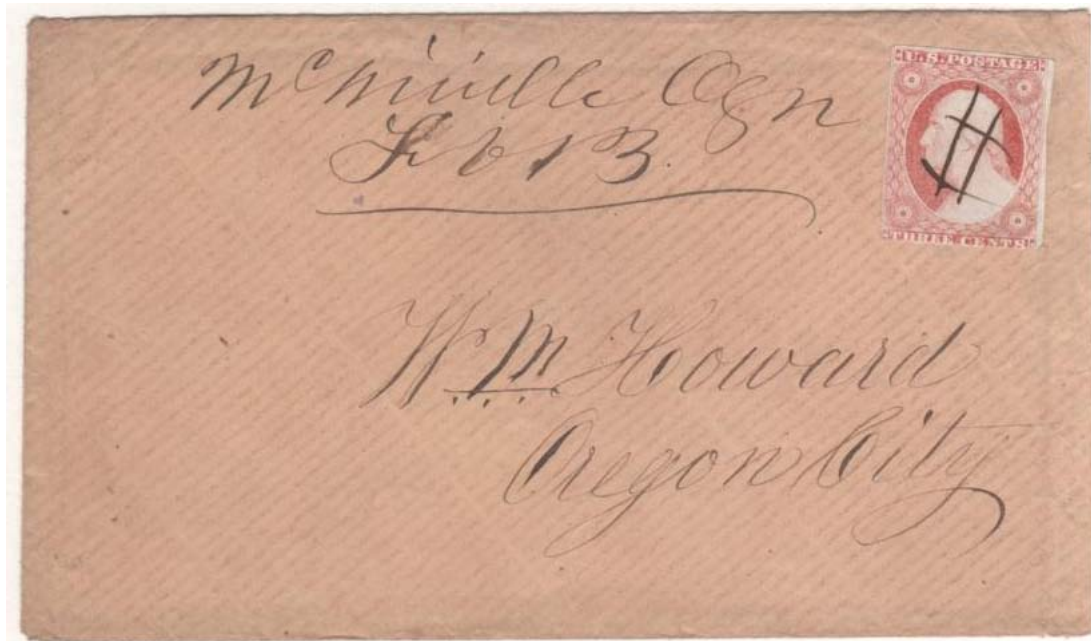 Ogn
Feb 13.
U.S. POSTAGE
THREE CENTS
Wm Howard
Oregon City